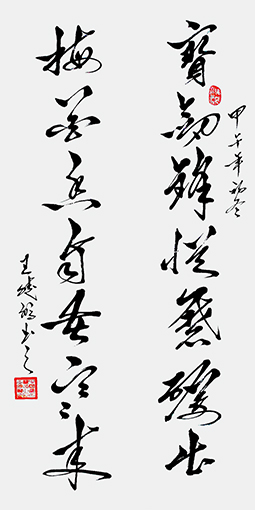 寶劍鋒從磨礪出
甲午年初冬
梅花香自苦寒來
王
書